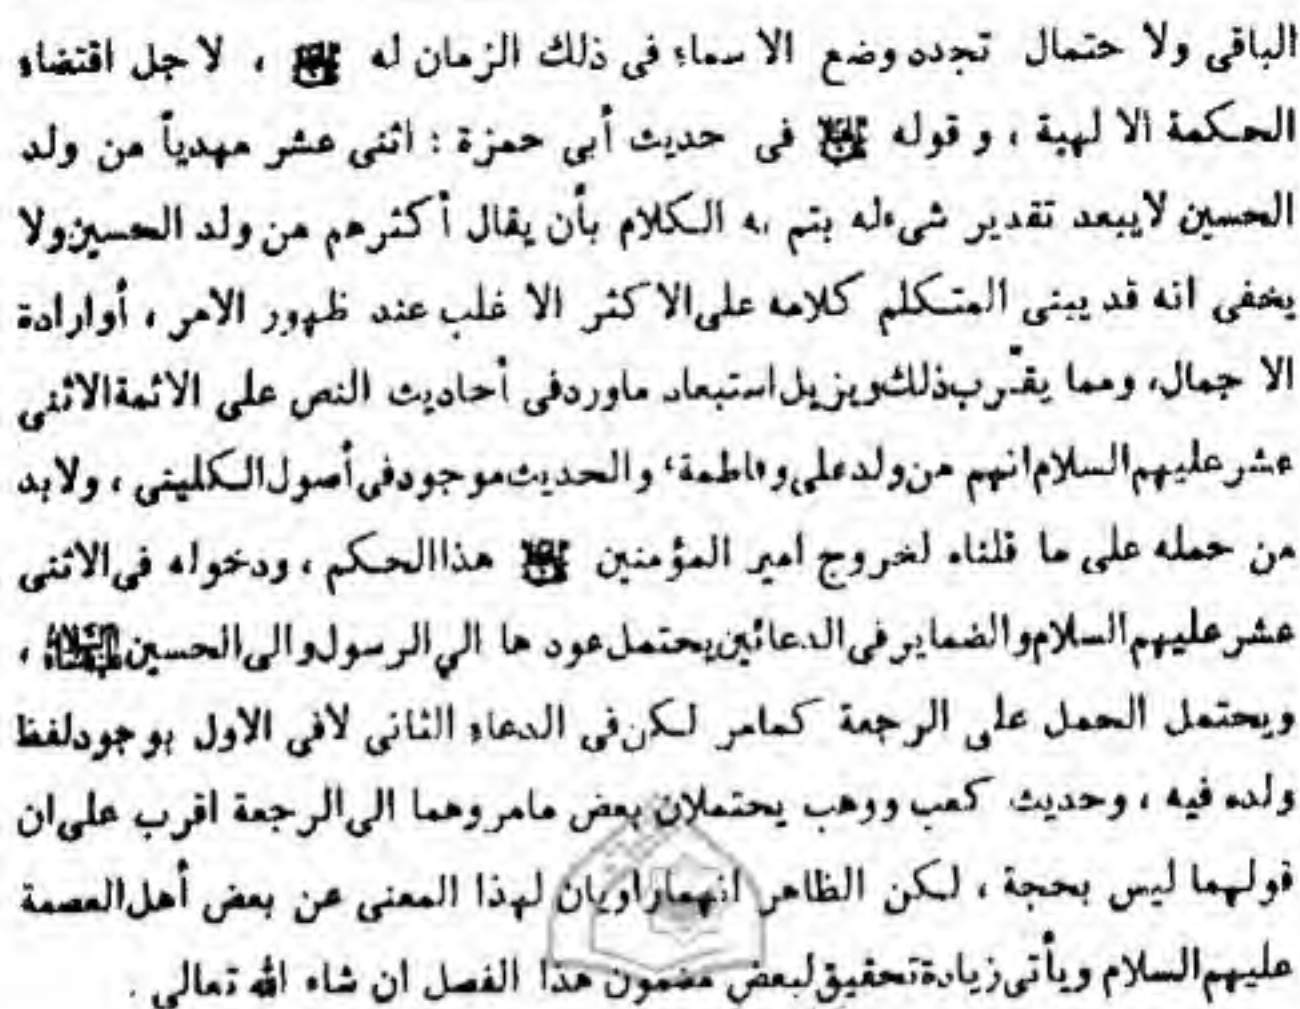 الباقى ولا حتمال تجدد وضع الا سماء فى ذلك الزمان له عليه السلام ، لا جل اقتضاء
الحكمة الا لهية ، و قوله عليه السلام فى حديث أبى حمزة : اثنى عشر مهدياً من ولد
الحسين لايبعد تقدير شىء له يتم به الكلام بأن يقال أكثرهم من ولد الحسين ولا
يخفى انه قد يبنى المتكلم كلامه على الاكثر الا غلب عند ظهور الامر ، أوارادة
الا جمال، ومما يقرّب ذلك ويزيل استبعاد ماورد فى أحاديث النص على الائمة الاثنى
عشر عليهم السلام انهم من ولد على و فاطمة ، والحديث موجود فى أصول الكلينى ، ولابد
من حمله على ما قلناه لخروج امير المؤمنين عليه السلام هذا الحكم ، ودخوله فى الاثنى
عشر عليهم السلام والضماير فى الدعائين يحتمل عود ها الى الرسول والى الحسين عليهما السلام ،
ويحتمل الحمل على الرجعة كمامر لكن فى الدعاء الثانى لافى الاول بوجود لفظ
ولده فيه ، وحديث كعب ووهب يحتملان بعض مامر وهما الى الرجعة اقرب على ان
قولهما ليس بحجة ، لكن الظاهر انهما راويان لهذا المعنى عن بعض أهل العصمة
عليهم السلام ويأتى زيادة تحقيق لبعض مضمون هذا الفصل ان شاء الله تعالى .